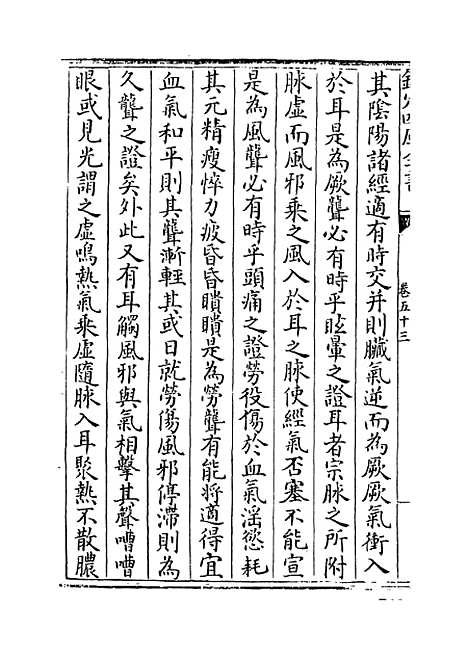 欽定四庫全書
卷五十三
其陰陽諸經適有時交并則臟氣逆而為厥厥氣衝入
於耳是為厥聾必有時乎眩暈之證耳者宗脉之所附
脉虛而風邪乘之風入於耳之脉使經氣否塞不能宣
是為風聾必有時乎頭痛之證勞役傷於血氣淫慾耗
其元精瘦悴力疲昏昏瞶瞶是為勞聾有能將適得宜
血氣和平則其聾漸輕其或日就勞傷風邪停滯則為
久聾之證矣外此又有耳觸風邪與氣相擊其聲嘈嘈
眼或見光謂之虛鳴熱氣乘虛隨脉入耳聚熱不散膿